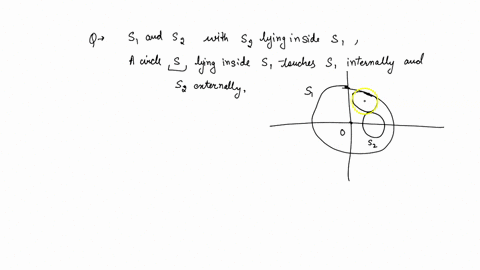 Q→ S1 and S2 with S2 lying inside S1,
A circle S lying inside S1 touches S1 internally and
S2 externally.
S1
O
S2